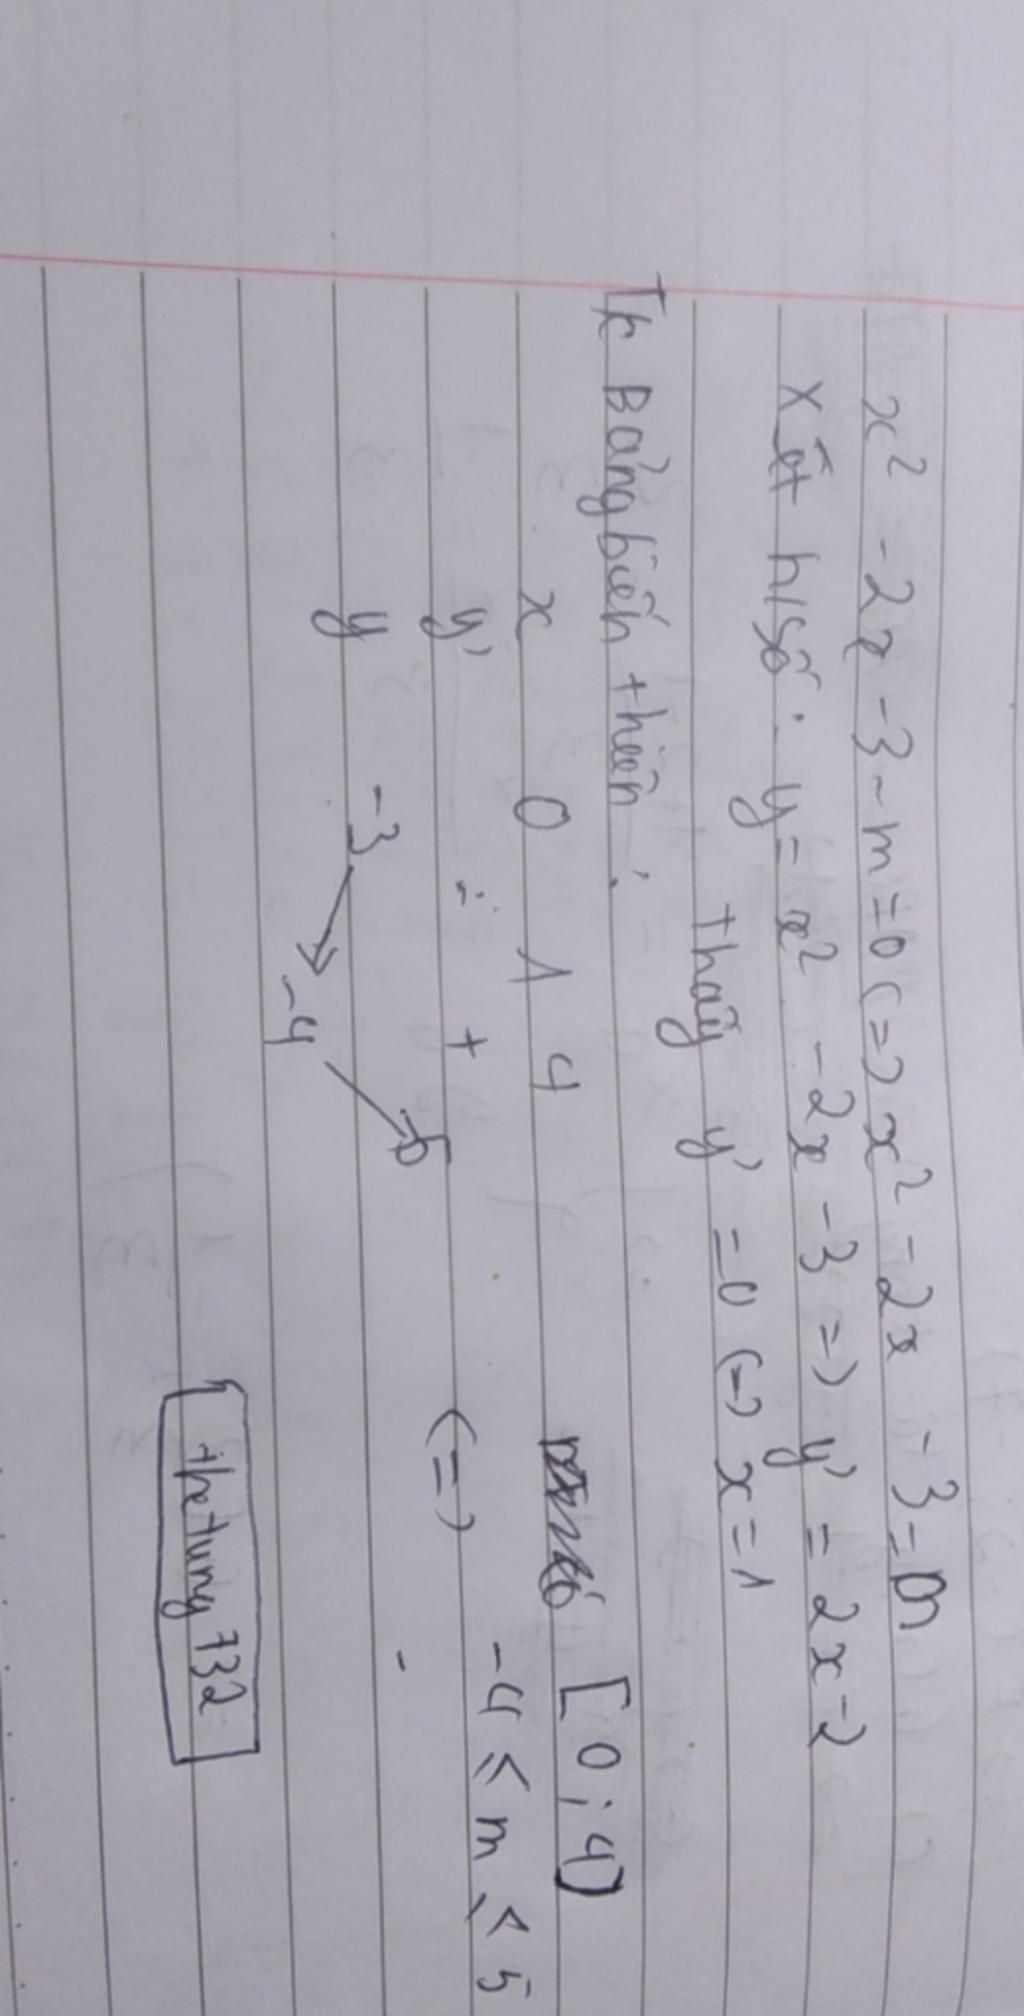 x² - 2x - 3 - m = 0 (=) x² - 2x - 3 = m
Xét h/số : y = x² - 2x - 3 =) y' = 2x - 2
thấy y' = 0 (=) x = 1
Tk Bảng biến thiên :
x 0 1 4 [0 ; 4)
y' - + (=) -4 ≤ m < 5
y -3 -4 5
thetung732